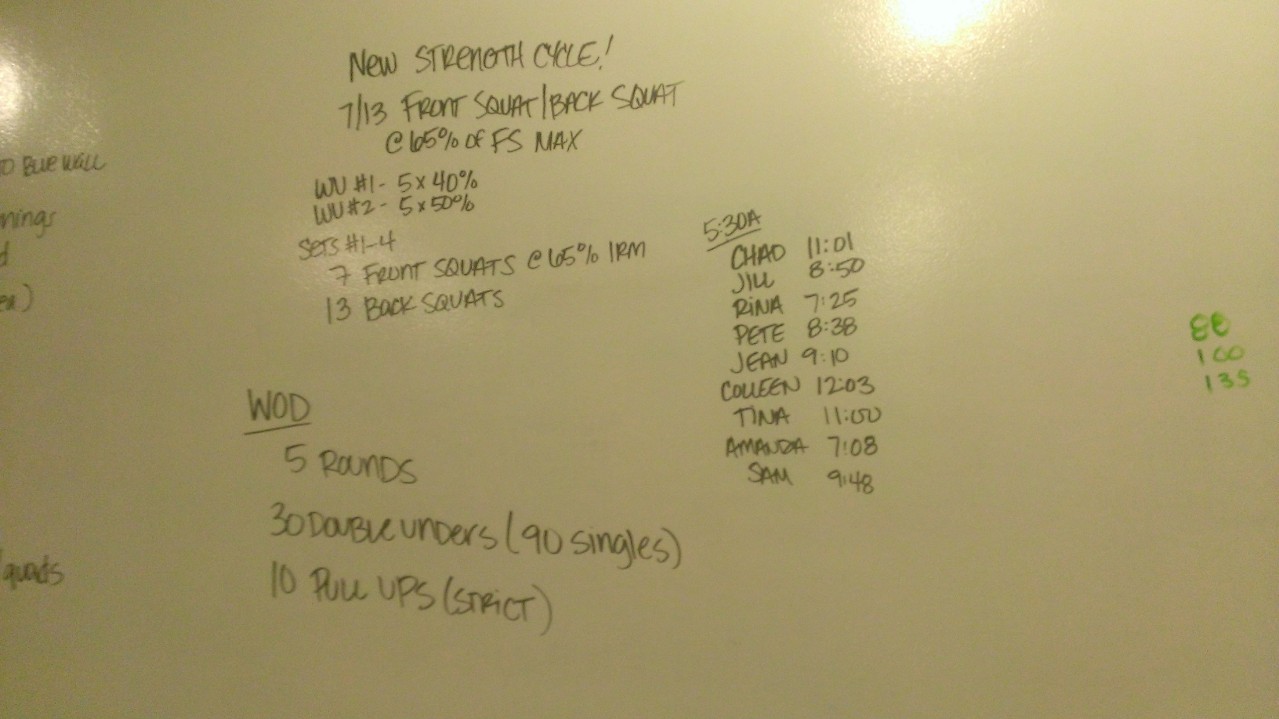 New STRENGTH CYCLE!
7/13 FRONT SQUAT/BACK SQUAT
@ 65% OF FS MAX
WU #1 - 5 x 40%
WU #2 - 5 x 50%
SETS #1-4
7 FRONT SQUATS @ 65% 1RM
13 BACK SQUATS
WOD
5 ROUNDS
30 DOUBLE UNDERS (90 singles)
10 PULL UPS (STRICT)
5:30A
CHAD 11:01
JILL 8:50
RINA 7:25
PETE 8:38
JEAN 9:10
COLLEEN 12:03
TINA 11:00
AMANDA 7:08
SAM 9:48
BLUE WALL
quads
100
135